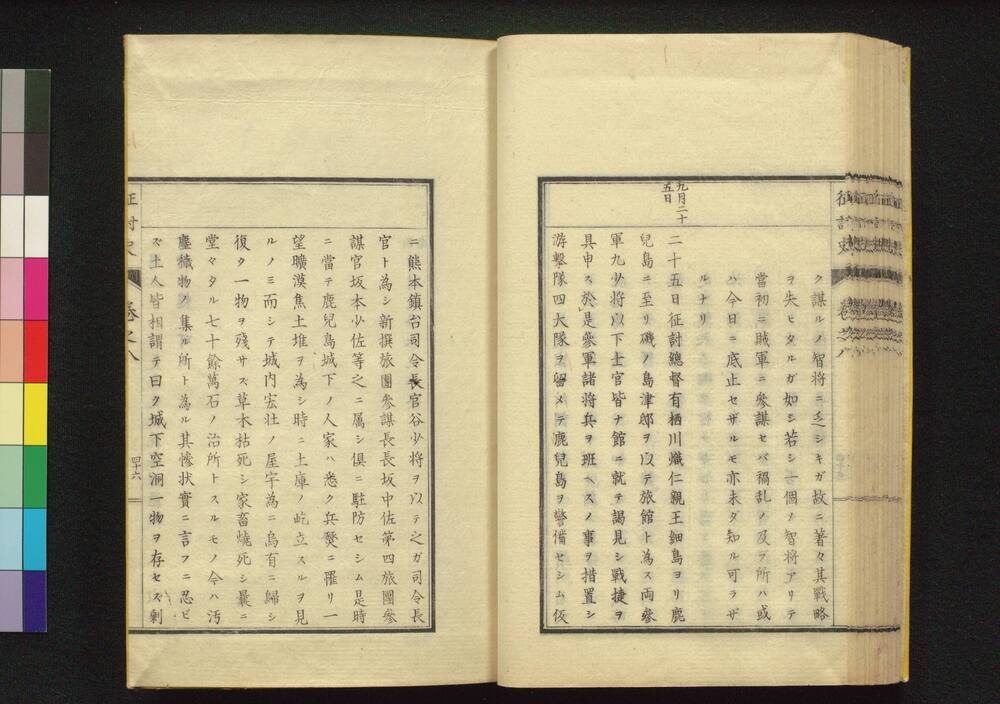 征討史
卷之八
ク謀ルノ智将ニ乏シキガ故ニ著々其戰略
ヲ失ヒタルガ如シ若シ一個ノ智将アリテ
當初ニ賊軍ニ參謀セバ禍乱ノ及ブ所ハ或
ハ今日ニ底止セザルモ亦未ダ知ル可ラザ
ルナリ
九月二十
五日
二十五日征討總督有栖川熾仁親王細島ヨリ鹿
兒島ニ至リ磯ノ島津邸ヲ以テ旅館ト為ス両參
軍九少将以下士官皆ナ館ニ就テ謁見シ戰捷ヲ
具申ス於是霎軍諸将兵ヲ班ヘスノ事ヲ措置シ
游撃隊四大隊ヲ留メテ鹿兒島ヲ警備セシム仮
ニ熊本鎮台司令長官谷少将ヲ以テ之ガ司令長
官ト為シ新撰旅團參謀長長坂中佐第四旅團參
謀官坂本少佐等之ニ属シ倶ニ駐防セシム是時
ニ當テ鹿兒島城下ノ人家ハ悉ク兵燹ニ罹リ一
望曠漠焦土堆ヲ為シ時ニ土庫ノ屹立スルヲ見
ルノミ而シテ城内宏壮ノ屋宇為ニ烏有ニ歸シ
復タ一物ヲ殘サズ草木枯死シ家畜燒死シ曩ニ
堂々タル七十餘萬石ノ治所トスルモノ今ハ汚
塵穢物ノ集ル所ト為ル其慘状實ニ言フニ忍ビ
ズ土人皆相謂テ曰ク城下空洞一物ヲ存セズ剰
征討史
卷之八
四十六